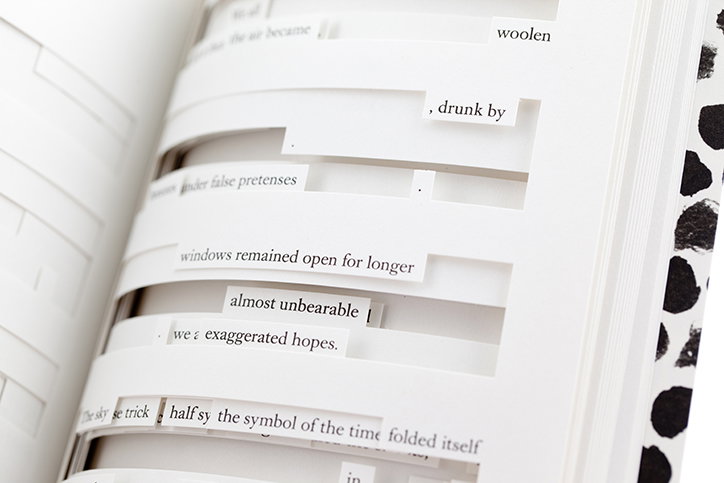 the air became ,
woolen
, drunk by
.
under false pretenses .
windows remained open for longer
almost unbearable
. we a exaggerated hopes.
The sky se trick half sy the symbol of the time folded itself
in